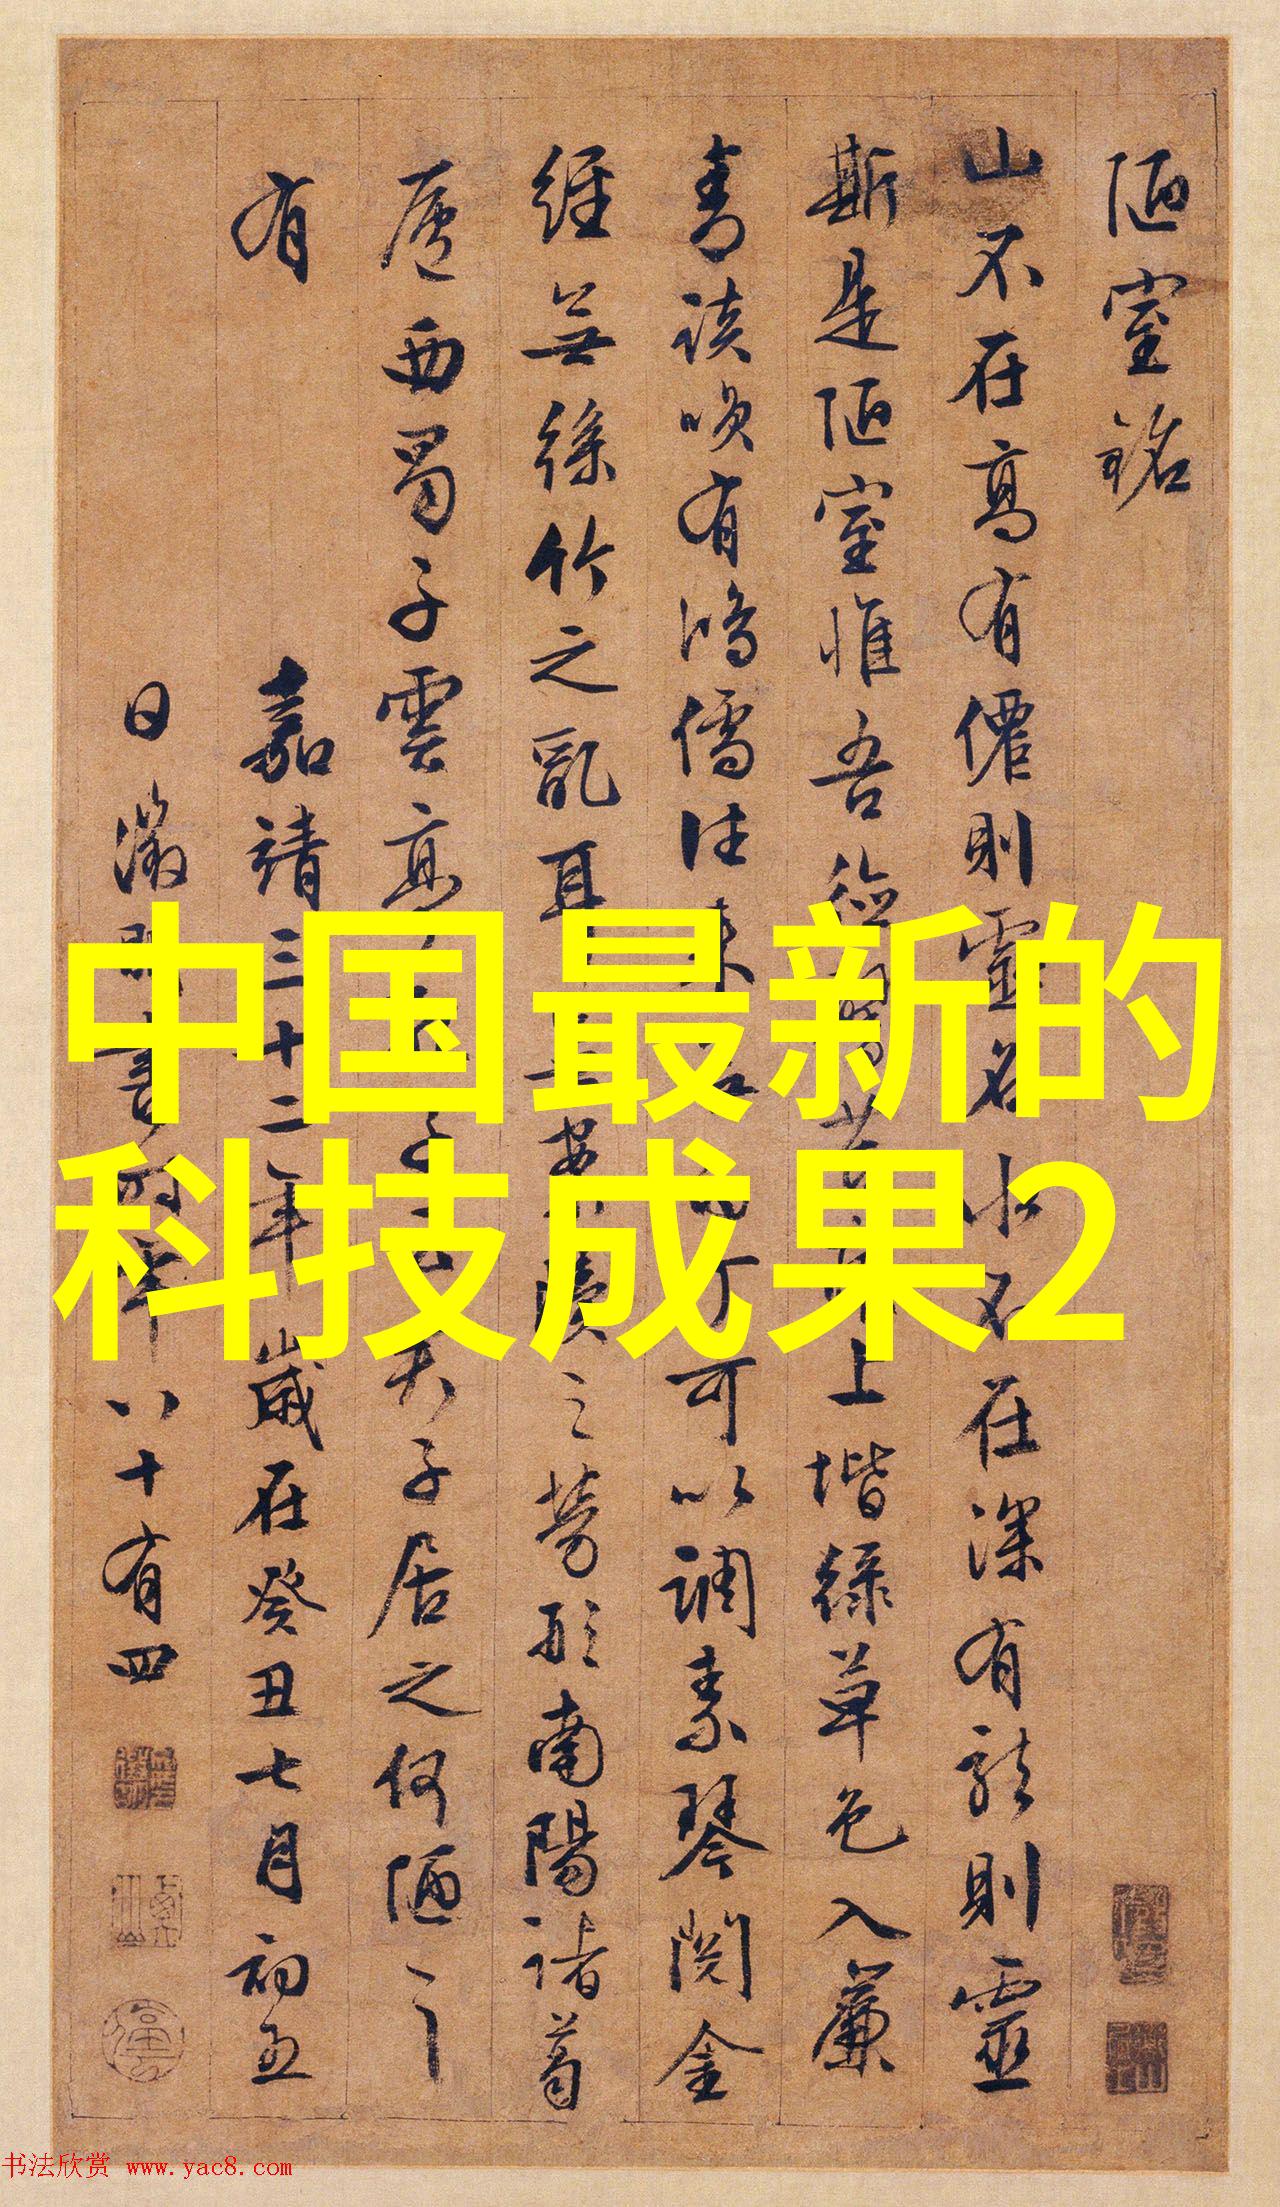 陋室銘
山不在高有僊則靈名水不在深有龍則靈
斯是陋室惟吾德馨苔上堦緑草色入簾
青談唉有鴻儒往来丁可以調素琴閱金
經無絲竹之亂耳案牘之勞形南陽諸葛
廬西蜀子雲亭子居之何陋之
有
嘉靖三十二年歲在癸丑七月初五
日徵明書時年八十有四
中国最新的
科技成果2
书法欣赏 www.yac8.com